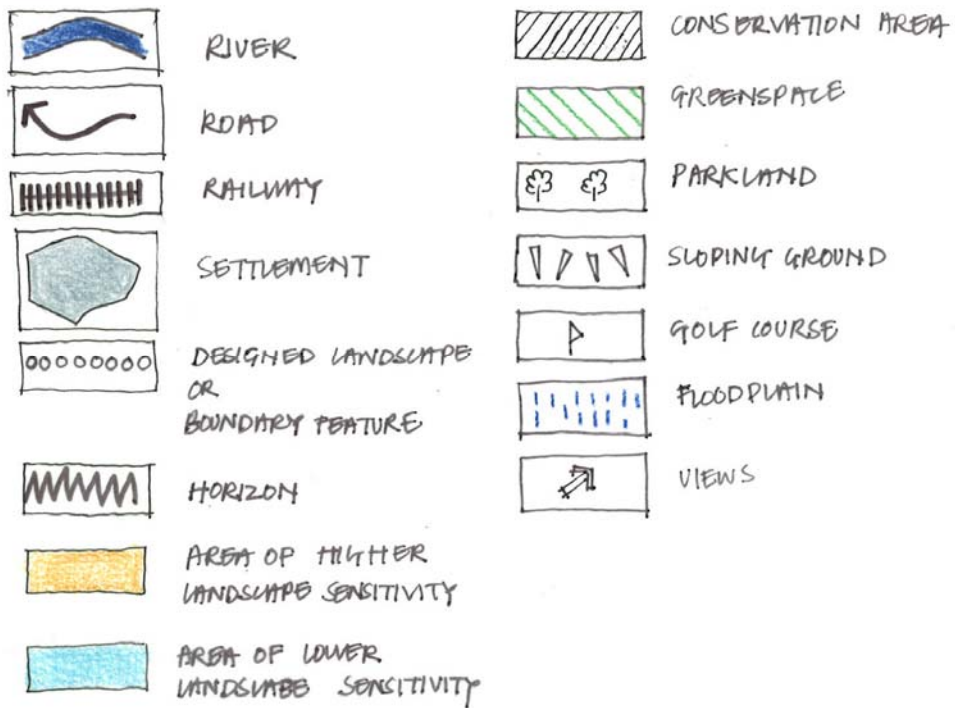 RIVER
ROAD
RAILWAY
SETTLEMENT
DESIGNED LANDSCAPE
OR
BOUNDARY FEATURE
HORIZON
AREA OF HIGHER
LANDSCAPE SENSITIVITY
AREA OF LOWER
LANDSCAPE SENSITIVITY
CONSERVATION AREA
GREENSPACE
PARKLAND
SLOPING GROUND
GOLF COURSE
FLOODPLAIN
VIEWS